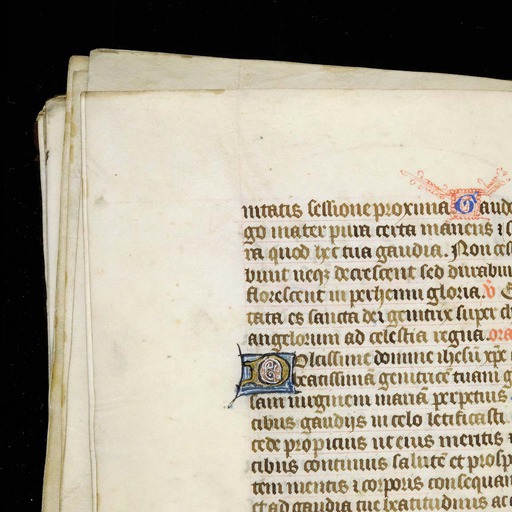 nitatis sessione proxima Gaude
go mater pura certa manens ⁊ s
ra quod hec tua gaudia. Non ces
bunt neqꝫ decrescent sed durabun
florescent in perhenni gloria. v̄ E
tata es sancta dei genitrix super ch
angelorum ad celestia regna. ora
Dulcissime domine ihesu xp̄e
beatissimā genitricē tuam g
sam uirginem mariā perpetuis
tibus gaudijs in celo letificasti
cede propicius ut eius meritis ⁊
cibus continuis salutē et prosp
tem mentis ⁊ corporis consequam
et ad gaudia tue beatitudinis ac